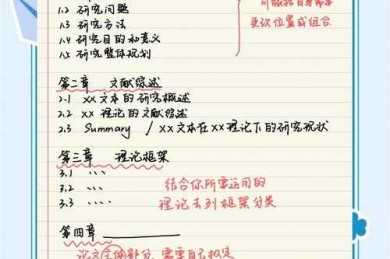 1.2 研究问题
1.3 研究方法
1.4 研究目的和意义
1.5 研究整体规划
更改位置或组合
第二章 文献综述
2.1 XX文本的研究概述
2.2 XX理论的文献综述
2.3 Summary / XX文本在XX理论下的研究现状
第三章 理论框架
3.1 ....
3.2 ....
3.3 ....
结合你所需运用的
理论去列框架分类
第四章
论文主体部分，需要自己拟定